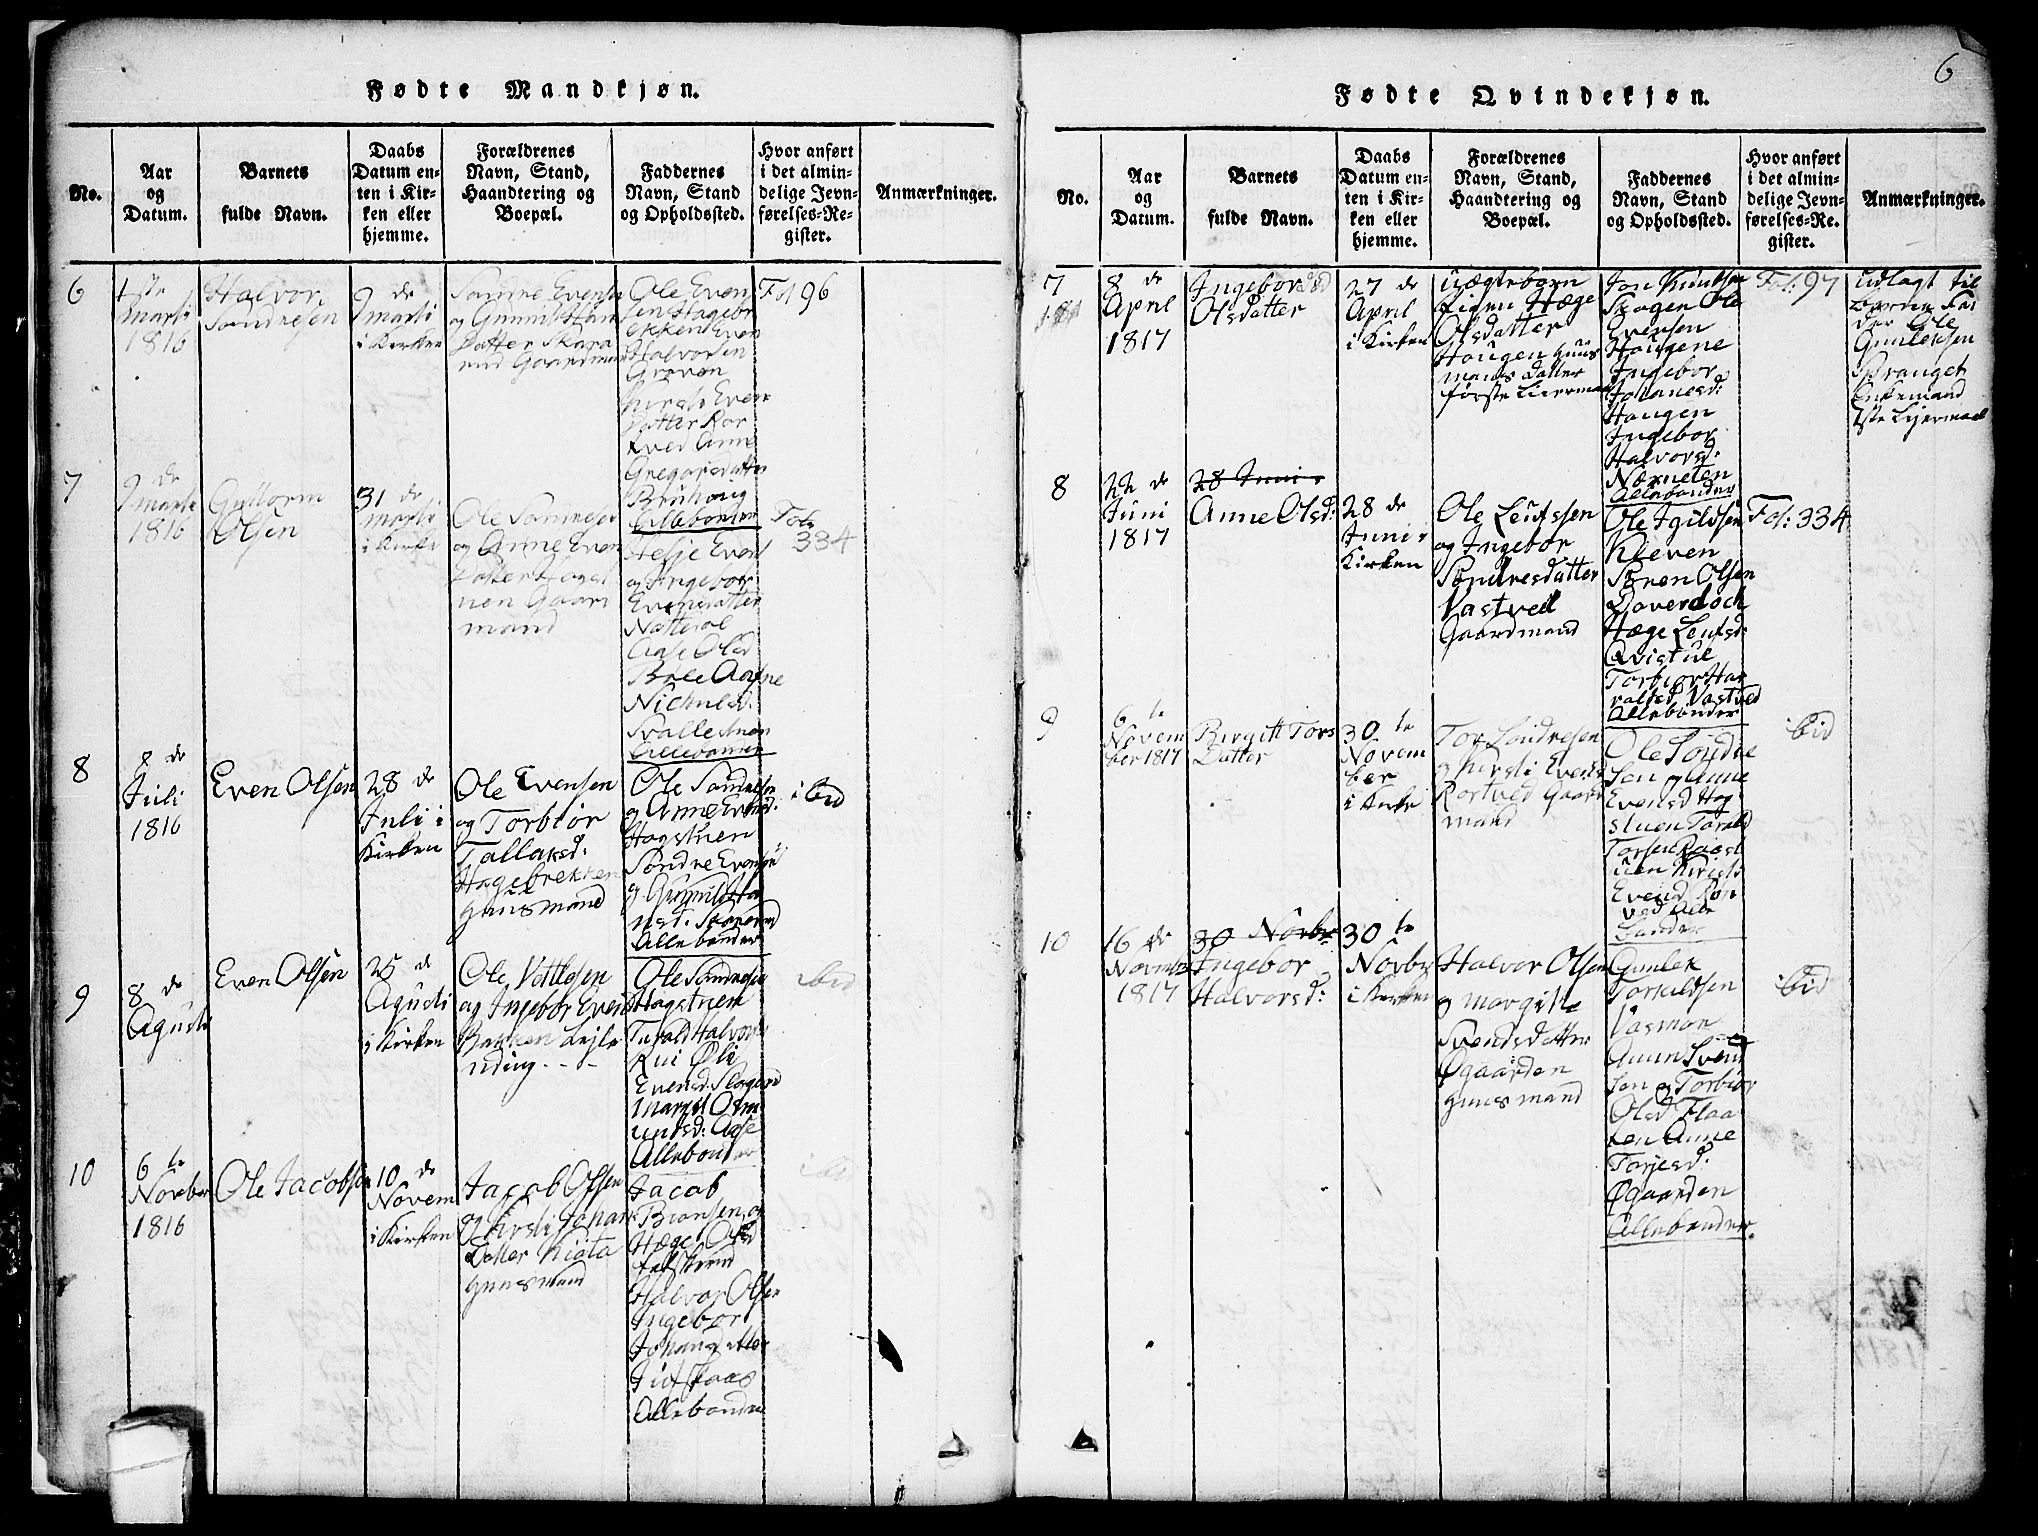 Fødte Mandkjøn.
No.
Aar
og
Datum.
Barnets
fulde Navn.
Daabs
Datum en-
ten i Kir-
ken eller
hjemme.
Forældrenes
Navn, Stand,
Haandtering og
Boepæl.
Faddernes
Navn, Stand
og Opholdssted.
Hvor anført
i det almin-
delige Jevn-
førelses-Re-
gister.
Anmærkninger.
6
1ste
Marti
1816
Halvor
Sondresen
9 de
Marti
i Kirken
Sondre Evensen
og Gunnil Han
Datter Skara
rud Gaardmand
Ole Even
sen Hagebr
ekken Even
Halvorsen
Groven
Kirsti Even
Datter Ror
tved Anne
Gregarsdatter
Bruhaug
Allebønder
Fol 96
7
9 de
Marti
1816
Guttorm
Olsen
31 de
Marti
i Kirke
Ole Sondresen
og Anne Even
Datter Hagst
uen Gaard
mand
Evensdatter
Aase Olsd
Allebønder
Fol:
334
8
8 de
Juli
1816
Even Olsen
28 de
Juli i
Kirken
Ole Evensen
og Torbiør
Tallaksd:
Hagebrekken
Huusmand
Ole Sondresen
og Anne Evensd:
Hagstuen
Sondre Evensen
og Gunnild Ha
nsd: Skararud
Allebønder
ibid
9
8 de
Agusti
Even Olsen
25 d
Agusti
i Kirken
Ole Vetlesen
og Ingebor Evensd
Bakken Lejle
nding - - -
Ole Sondresen
Hagstuen
Tarald Halvors
Rui Øli
Evensd: Skogend
Margit Osm
undsd: Aase
Allebønder
ibid
10
6 te
Novbr
1816
Ole Jacobsen
10 de
Novem
i Kirken
Jacob Olsen
og Kirsti Johan
Datter Kiøta
Huusmand
Jacob
Biønsen og
Hæge Olsd
Halvor Olsen
Ingebor
Johansdatter
Allebønder
ibid
Fødte Qvindekjøn.
6
No.
Aar
og
Datum.
Barnets
fulde Navn.
Daabs
Datum en-
ten i Kir-
ken eller
hjemme.
Forældrenes
Navn, Stand,
Haandtering og
Boepæl.
Faddernes
Navn, Stand
og Opholdssted.
Hvor anført
i det almin-
delige Jevn-
førelses-Re-
gister.
Anmærkninger.
7
8 de
April
1817
Ingebor
Olsdatter
27 de
April
i Kirken
uægteborn
Pigen Hæge
Olsdatter
Hougen Huus
mands Datter
første Leiermaal
Jon Knudsen
Skogen Ole
Evensen
Hougene
Ingebor
Johanesd:
Haugen
Ingebor
Halvorsd:
Nærneten
Allebønder
Fol: 97
Udlagt til
barne Fa
der Ole
Gunleksen
Spranget
Enkemand
1ste Lejermaal
8
22 de
Juni
1817
28 Juni
Anne Olsd:
28 de
Juni i
Kirken
Ole Leufssen
og Ingebor
Sondresdatter
Vastved
Gaardmand
Ole Igildsen
Kleven
Søren Olsen
Doverdoch
Hæge Leufsd:
Qvistul
Torbior Har
raldsd Vastved
Allebønder
Fol: 334
9
6 te
Novem
ber 1817
Birgitt Tors
Datter
30 te
Novem
ber
i Kirke
Tor Sondresen
og Kirsti Evens
Rortved Gaard
mand
Ole Sondre
sen og Anne
Evensd Hag
stuen Tarald
Torsen Raast
uen Kirsti
Evensd Ror
ved Alle
bønder
ibid
10
16 de
Novembr
1817
30 Novbr
Ingebor
Halvorsd:
30 te
Novbr
i Kirken
Halvor Olsen
og Margitte
Svendsdatter
Øgaarden
Huusmand
Gunlek
Torkildsen
Vasman
Aanun Svend
sen og Torbior
Olsd Flaa
ten Anne
Torjesd:
Øgaarden
Allebønder.
ibid